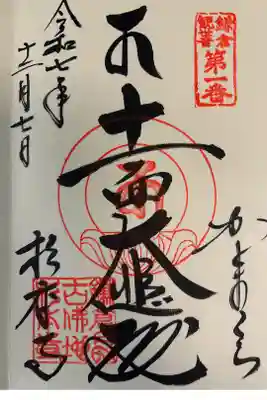 鎌倉
観音
第一番
かまくら
十一面大悲殿
令和七年
十二月七日
杉本寺
鎌倉最
古佛地
杉本寺